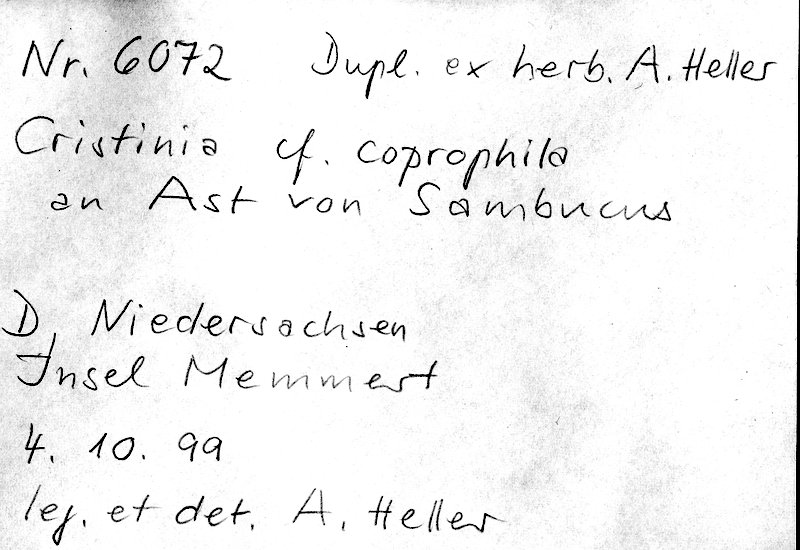 Nr. 6072 Dupl. ex herb. A. Heller
Cristinia cf. coprophila
an Ast von Sambucus
D, Niedersachsen
Insel Memmert
4. 10. 99
leg. et det. A. Heller